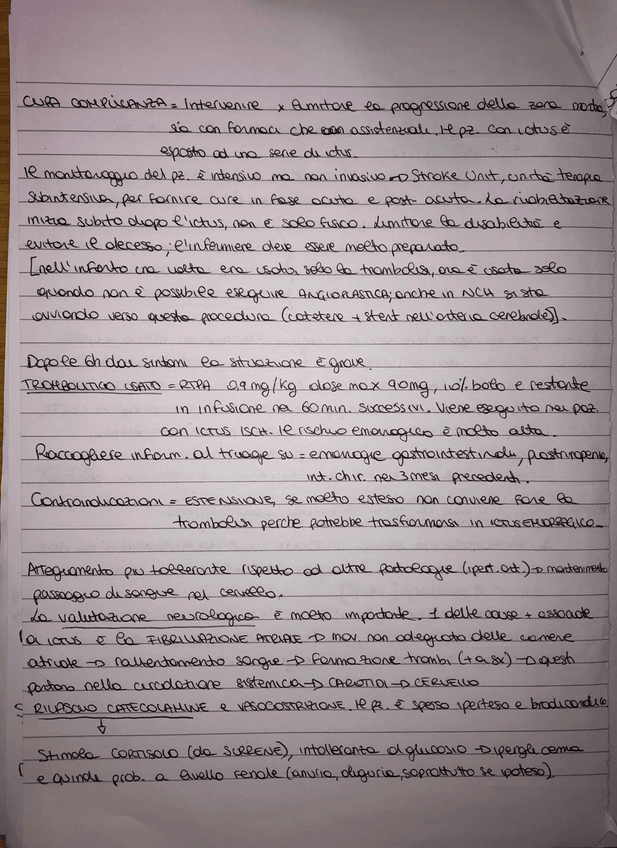 CURA COMPLICANZA = Intervenire x limitare la progressione della zona morta,
sia con farmaci che assistenziale. Il pz. con ictus è
esposto ad una serie di ictus.
Il monitoraggio del pz. è intensivo ma non invasivo → Stroke Unit, unità terapia
subintensiva, per fornire cure in fase acuta e post-acuta. La riabilitazione
inizia subito dopo l'ictus, non è solo fisica. Limitare la disabilità e
evitare il decesso; l'infermiere deve essere molto preparato.
[nell'infarto una volta era usata solo la trombolisi, ora è usata solo
quando non è possibile eseguire ANGIOPLASTICA; anche in NCH si sta
avviando verso questa procedura (catetere + stent nell'arteria cerebrale)].
Dopo le 6h dai sintomi la situazione è grave.
TROMBOLITICO USATO = RTPA 0,9 mg/kg dose max 90mg, 10% bolo e restante
in infusione nei 60 min. successivi. Viene eseguito nei paz.
con ICTUS ISCH. Il rischio emorragico è molto alto.
Raccogliere inform. al triage su = emorragie gastrointestinali, piastrinopenie,
int. chir. nei 3 mesi precedenti.
Controindicazioni = ESTENSIONE, se molto esteso non conviene fare la
trombolisi perché potrebbe trasformarsi in ICTUS EMORRAGICO.
Atteggiamento più tollerante rispetto ad altre patologie (ipert. art.) → mantenimento
passaggio di sangue nel cervello.
La valutazione neurologica è molto importante. 1 delle cause + associate
a ictus è la FIBRILLAZIONE ATRIALE → mov. non adeguato delle camere
atriale → rallentamento sangue → formazione trombi (+ a sx) → questi
portano nella circolazione sistemica → CAROTIDI → CERVELLO
RILASCIO CATECOLAMINE e VASOCOSTRIZIONE. Il pz. è spesso iperteso e bradicardico
↓
Stimola CORTISOLO (da SURRENE), intolleranza al glucosio → iperglicemia
e quindi prob. a livello renale (anuria, oliguria, soprattutto se ipoteso)